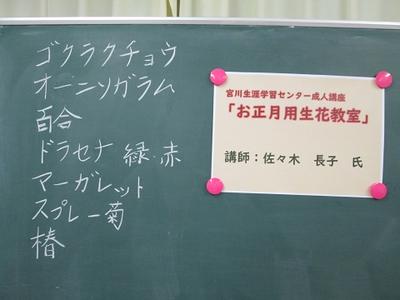 ゴクラクチョウ
オーニソガラム
百合
ドラセナ 緑・赤
マーガレット
スプレー菊
椿
宮川生涯学習センター成人講座
「お正月用生花教室」
講師：佐々木 長子 氏